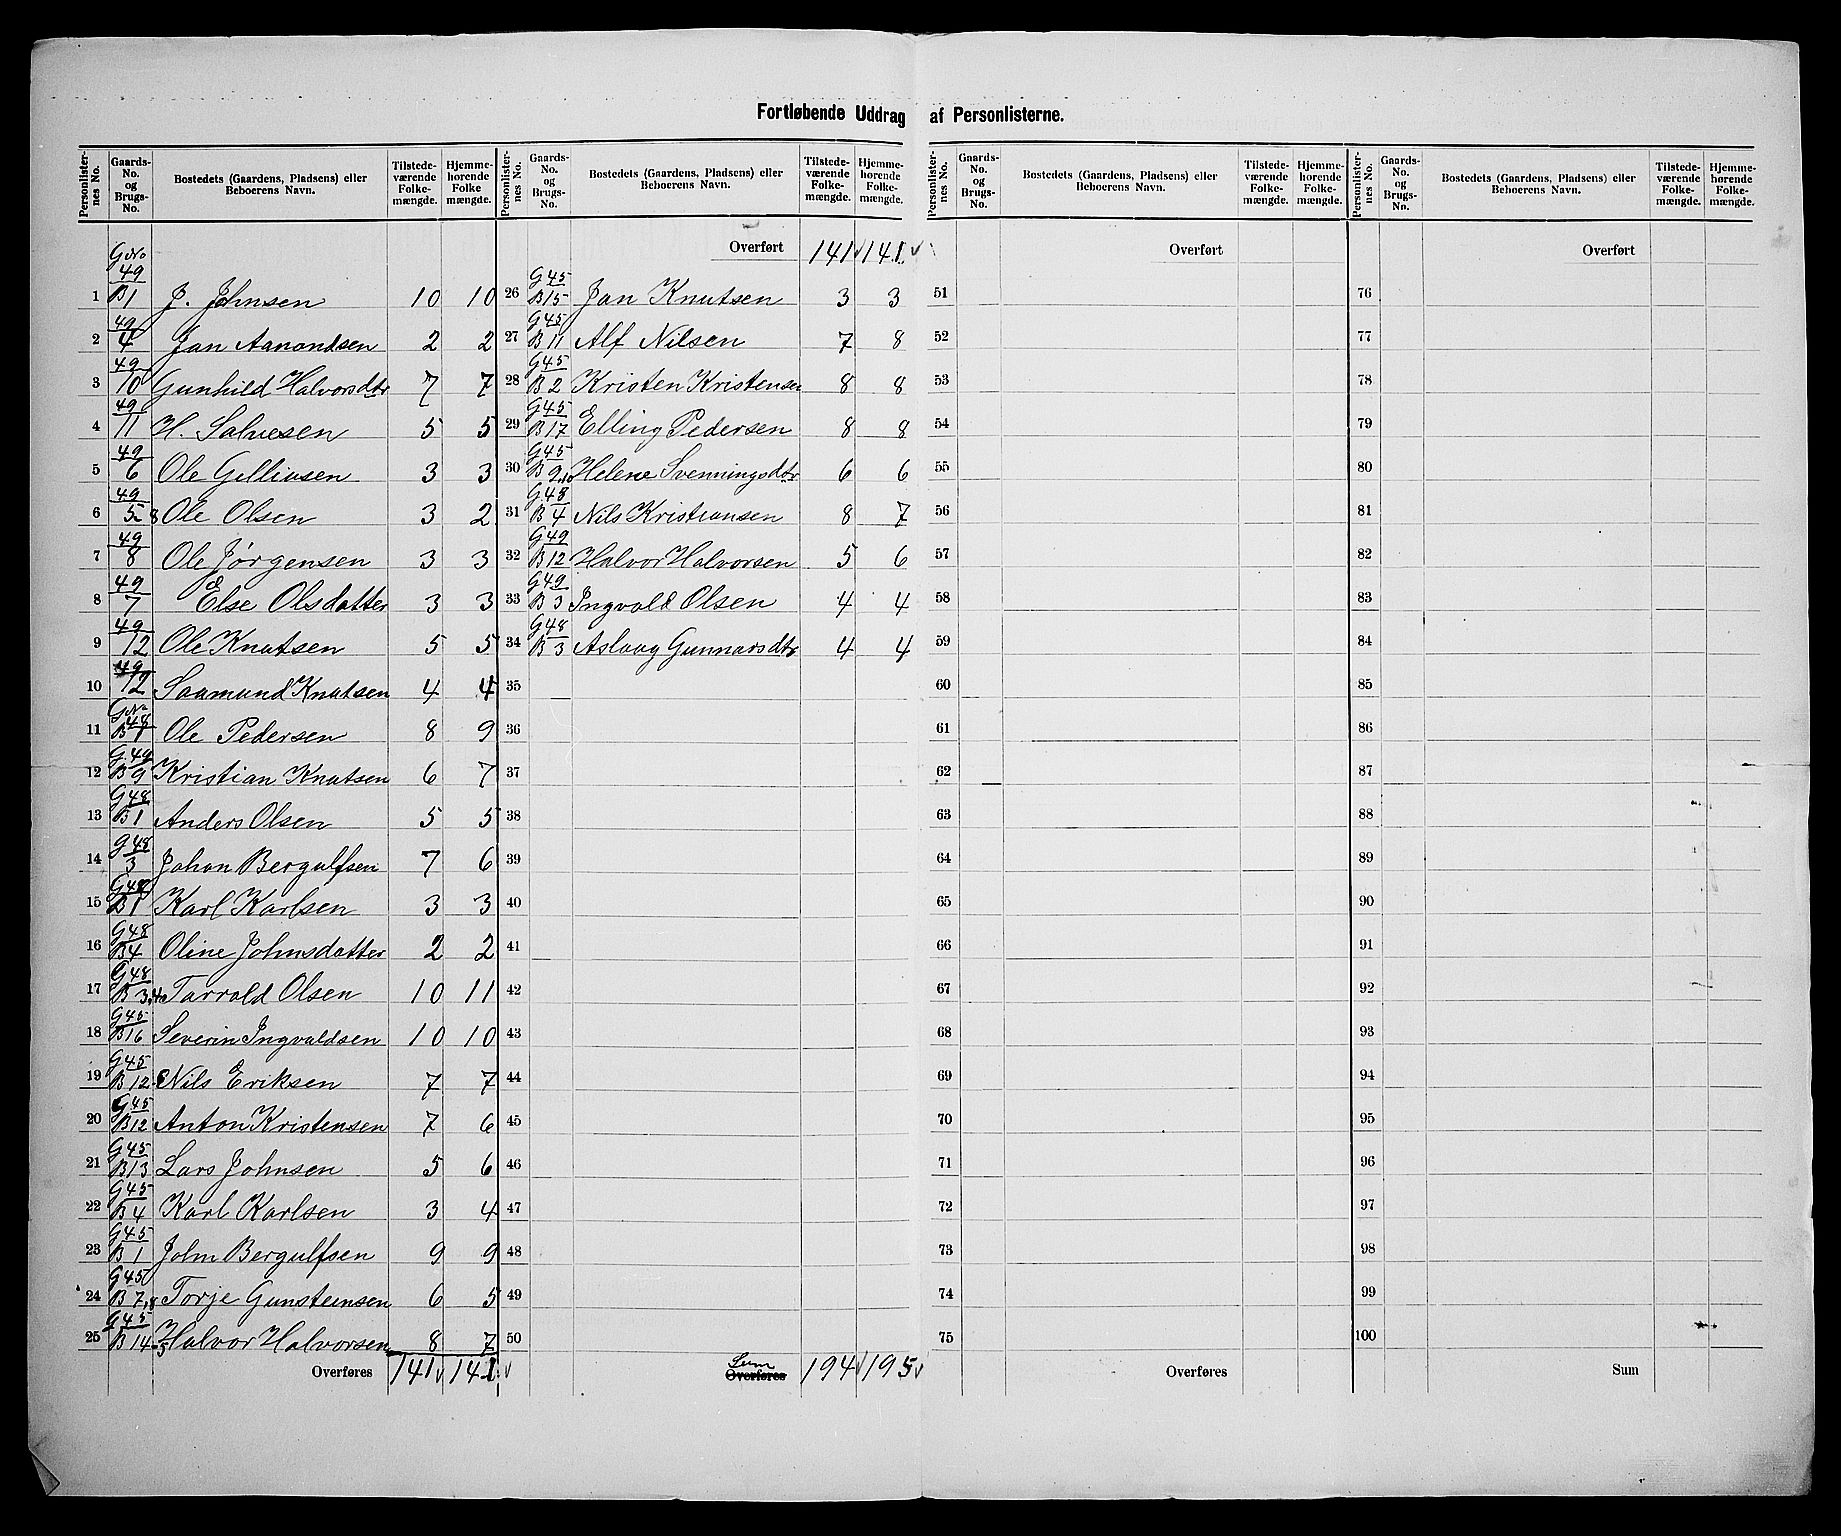 Fortløbende Uddrag af Personlisterne.
Personlisternes No. Gaards-No. og Brugs-No. Bostedets (Gaardens, Pladsens) eller Beboerens Navn. Tilstedeværende Folkemængde. Hjemmehørende Folkemængde.
G No
1 49/B1 J. Johnsen 10 10
2 49/4 Jan Aanondsen 2 2
3 49/10 Gunhild Halvorsdtr 7 7
4 49/11 H. Salvesen 5 5
5 49/6 Ole Gelliusen 3 3
6 49/5-8 Ole Olsen 3 2
7 49/8 Ole Jørgensen 3 3
8 49/7 Else Olsdatter 3 3
9 49/12 Ole Knutsen 5 5
10 49/12 Saamund Knutsen 4 4
11 G No 48/B1 Ole Pedersen 8 9
12 G49/B9 Kristian Knutsen 6 7
13 G48/B1 Anders Olsen 5 5
14 G48/3 Johan Bergulfsen 7 6
15 G48/B1 Karl Karlsen 3 3
16 G48/B4 Oline Johnsdatter 2 2
17 G48/B3,4 Tarrald Olsen 10 11
18 G45/B16 Severin Ingvaldsen 10 10
19 G45/B12 Nils Eriksen 7 7
20 G45/B12 Anton Kristensen 7 6
21 G45/B13 Lars Johnsen 5 6
22 G45/B4 Karl Karlsen 3 4
23 G45/B1 John Bergulfsen 9 9
24 G45/B7,8 Torje Gunsteinsen 6 5
25 G45/B14 Halvor Halvorsen 8 7
Overføres 141 141
Personlisternes No. Gaards-No. og Brugs-No. Bostedets (Gaardens, Pladsens) eller Beboerens Navn. Tilstedeværende Folkemængde. Hjemmehørende Folkemængde.
Overført 141 141
26 G45/B15 Jan Knutsen 3 3
27 G45/B11 Alf Nilsen 7 8
28 G45/B2 Kristen Kristensen 8 8
29 G45/B17 Elling Pedersen 8 8
30 G45/B9,10 Helene Svenningsdtr 6 6
31 G48/B4 Nils Kristiansen 8 7
32 G49/B12 Halvor Halvorsen 5 6
33 G49/B3 Ingvald Olsen 4 4
34 G48/B3 Aslaug Gunnarsdtr 4 4
35
36
37
38
39
40
41
42
43
44
45
46
47
48
49
50
Sum
Overføres 194 195
Personlisternes No. Gaards-No. og Brugs-No. Bostedets (Gaardens, Pladsens) eller Beboerens Navn. Tilstedeværende Folkemængde. Hjemmehørende Folkemængde.
Overført
51
52
53
54
55
56
57
58
59
60
61
62
63
64
65
66
67
68
69
70
71
72
73
74
75
Overføres
Personlisternes No. Gaards-No. og Brugs-No. Bostedets (Gaardens, Pladsens) eller Beboerens Navn. Tilstedeværende Folkemængde. Hjemmehørende Folkemængde.
Overført
76
77
78
79
80
81
82
83
84
85
86
87
88
89
90
91
92
93
94
95
96
97
98
99
100
Sum